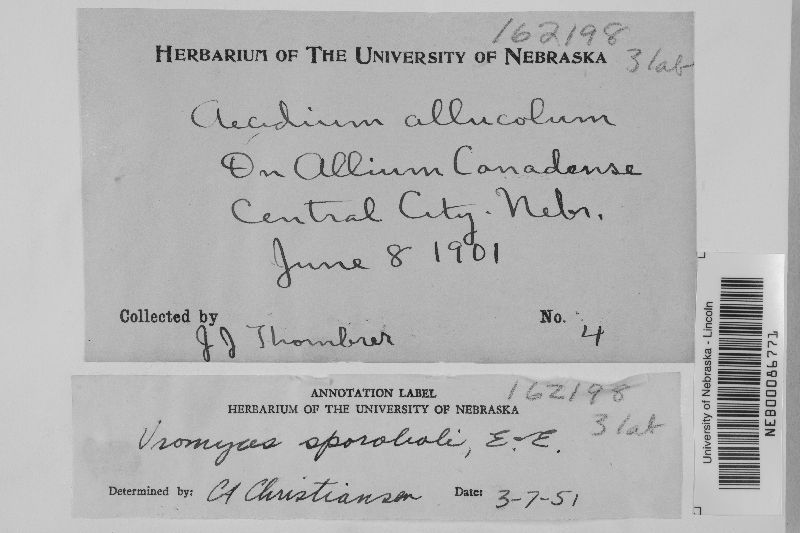 162198
HERBARIUM OF THE UNIVERSITY OF NEBRASKA 31ab
Aecidium allucolum
On Allium Canadense
Central City. Nebr.
June 8 1901
Collected by No.
J J Thornber 4
ANNOTATION LABEL 162198
HERBARIUM OF THE UNIVERSITY OF NEBRASKA
31ab
Uromyces sporoboli, E. & E.
Determined by: CA Christiansen Date: 3-7-51
University of Nebraska - Lincoln
NEB00086771